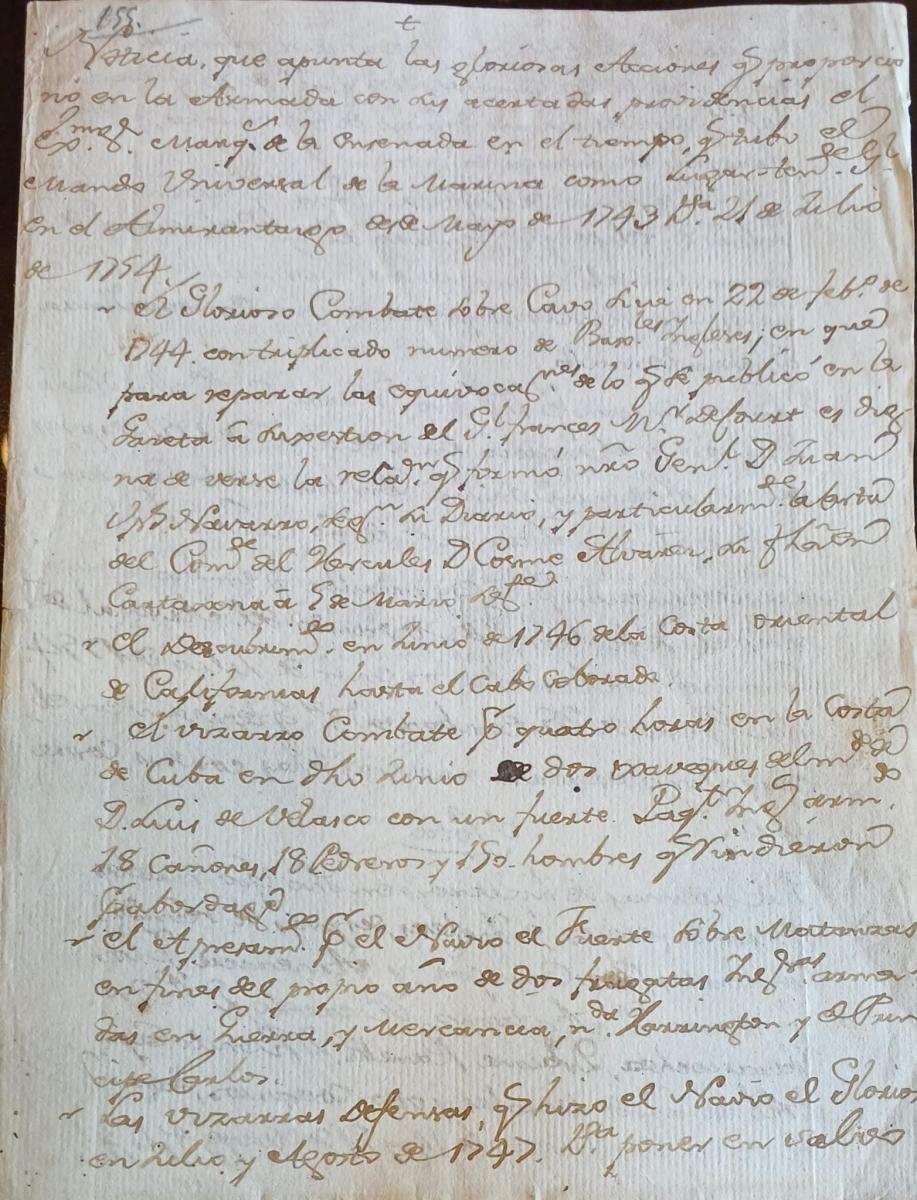 155.
+
Noticia, que apunta las gloriosas Acciones q̃ proporcio
nó en la Armada con sus acertadas providencias el
Exmo. Sr. Marqs. de la Ensenada en el tiempo, q̃ tubo el
Mando Universal de la Marina como Lugar-tente. de Gl.
en el Almirantazgo desde Mayo de 1743 hta. 21 de Julio
de 1754.
el Glorioso Combate sobre Cavo Siciè en 22 de febo. de
1744. con triplicado numero de Baxeles Ingleses; en que
para reparar las equivocanes. de lo q̃ se publicó en la
Gazeta à sugestion del Gl. frances Mr. de Court es dig-
na de verse la reladn. q̃ formó nro Genl. D. Juan
Jph Navarro, segn. su Diario, y particularmte. la carta
del Comde. del Hercules D Cosme Alvarez, su fha en
Cartaxena à 5 de Marzo
el descubrimto. en Junio de 1746 de la Costa oriental
de Californias hasta el Cabo Colorado.
el vizarro Combate p̃ quatro horas en la Costa
de Cuba en dho Junio de dos xaveques del mdo. de
D. Luis de Velasco con un fuerte Paqt. Ings. armdo.
18 Cañones, 18 Pedreros y 150. hombres q̃ rindieron
p̃ abordage.
el Apresamto. p̃ el Navio el Fuerte sobre Matanzas
en fines del propio año de dos fragatas Inglas. arma-
das en Guerra, y Mercancia, nda. Harrington y el Prin
cipe Carlos.
Las vizarras defensas, q̃ hizo el Navio el Glorioso
en Julio y Agosto de 1747. hta. poner en salvo